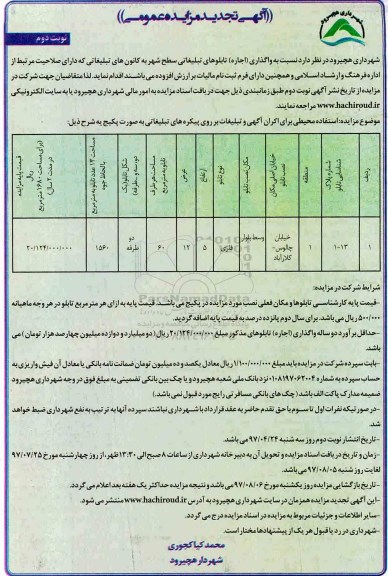 شهرداری هچیرود
((آگهی تجدید مزایده عمومی))
نوبت دوم
شهرداری هچیرود در نظر دارد نسبت به واگذاری (اجاره) تابلوهای تبلیغاتی سطح شهر به کانون های تبلیغاتی که دارای صلاحیت مرتبط از
اداره فرهنگ و ارشاد اسلامی و همچنین دارای فرم ثبت نام مالیات بر ارزش افزوده می باشند اقدام نماید. لذا متقاضیان جهت شرکت در
مزایده از تاریخ نشر آگهی نوبت دوم طبق زمانبندی ذیل جهت دریافت اسناد مزایده به امور مالی شهرداری هچیرود یا به سایت الکترونیکی
www.hachiroud.ir مراجعه نمایند.
موضوع مزایده: استفاده محیطی برای اکران آگهی و تبلیغات بر روی پیکره های تبلیغاتی به صورت پکیج به شرح ذیل:
ردیف
شماره پلاک شناسایی تابلو
منطقه
خیابان اصلی مکان نصب تابلو
مکان نصب تابلو
نوع تابلو
ارتفاع
عرض
مساحت هر طرف تابلو به مترمربع
شکل تابلو (یک، دو، سه و ...طرفه)
مساحت ۱۳ عدد تابلو به مترمربع با لحاظ دو وجه
قیمت پایه مزایده ریال
۱ ۱-۱۳ ۱ خیابان چالوس - کلارآباد وسط بلوار فلزی ۵ ۱۲ ۶۰ دو طرفه ۱۵۶۰ ۲۰/۱۲۴/۰۰۰/۰۰۰
شرایط شرکت در مزایده:
-قیمت پایه کارشناسی تابلوها و مکان فعلی نصب مورد مزایده در پکیج می باشد. قیمت پایه به ازای هر مترمربع تابلو در هر وجه ماهیانه
۵۰۰/۰۰۰ ریال می باشد. برای سال دوم پانزده درصد به قیمت پایه اضافه گردید.
-حداقل برآورد دو ساله واگذاری (اجاره) تابلوهای مذکور مبلغ ۲۰/۱۲۴/۰۰۰/۰۰۰ ریال (دو میلیارد و دوازده میلیون چهارصد هزار تومان) می
باشد.
-بابت سپرده شرکت در مزایده باید مبلغ ۱/۱۰۰/۰۰۰/۰۰۰ ریال معادل یکصد و ده میلیون تومان ضمانت نامه بانکی یا معادل آن فیش واریزی به
حساب سپرده به شماره ۰۱۰۸۱۹۷۰۶۲۰۰۲ نزد بانک ملی شعبه هچیرود و یا چک بین بانکی تضمینی به مبلغ فوق در وجه شهرداری هچیرود
ضمیمه مدارک پاکت الف باشد (چک های بانکی مسافرتی رایج مورد قبول نمی باشد.)
-در صورتیکه نفرات اول تا سوم یا حق تقدم حاضر به عقد قرارداد با شهرداری نباشند سپرده آنها به ترتیب به نفع شهرداری ضبط خواهد
شد.
-تاریخ انتشار نوبت دوم روز سه شنبه ۹۷/۰۴/۲۴ می باشد.
-زمان و تاریخ دریافت اسناد مزایده و تحویل آن به دبیرخانه شهرداری از ساعات ۸ صبح الی ۱۳:۳۰ ظهر، از روز چهارشنبه مورخ ۹۷/۰۷/۲۵
لغایت روز شنبه ۹۷/۰۸/۰۵ می باشد.
-تاریخ بازگشایی مزایده روز یکشنبه مورخ ۹۷/۰۸/۰۶ می باشد و نتیجه مزایده حداکثر یک هفته بعد اعلام می گردد.
-این آگهی تجدید مزایده همزمان در سایت شهرداری هچیرود به آدرس www.hachiroud.ir منتشر می شود.
-سایر اطلاعات و جزئیات مربوط به مزایده در اسناد مزایده درج می گردد.
-شهرداری در رد یا قبول هر یک از پیشنهادها مختار است.
محمد کیاکجوری
شهردار هچیرود